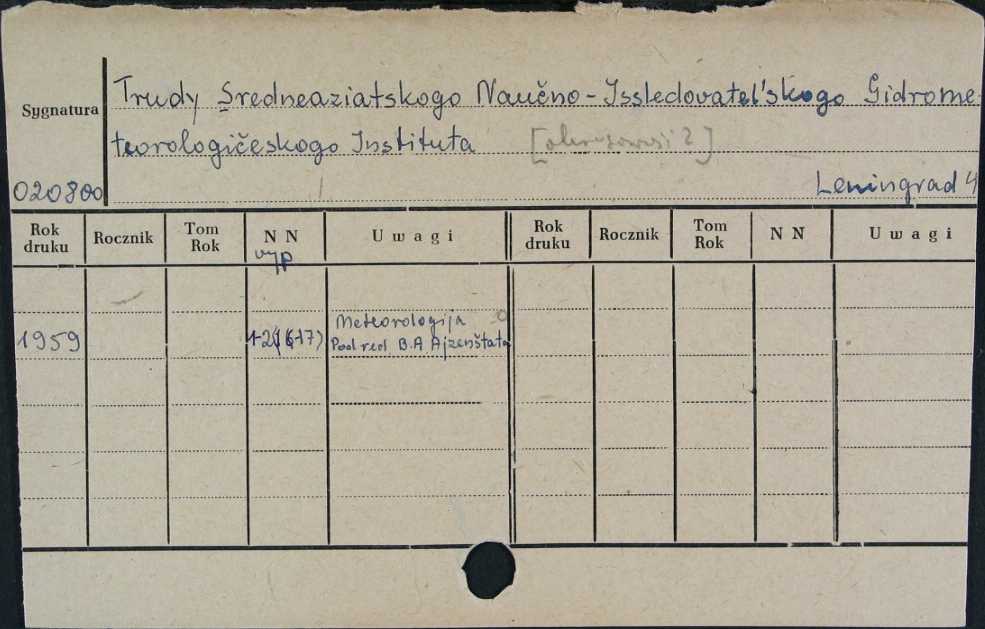 Trudy Sredneaziatskogo Naučno-Issledovatel'skogo Gidrome-
Sygnatura
teorologičeskogo Instituta
020800
Leningrad 4
Rok druku Rocznik Tom Rok N N Uwagi Rok druku Rocznik Tom Rok N N Uwagi
vyp
Meteorologija
1959 1-2(16-17) Pod red B.A Ajzenštata